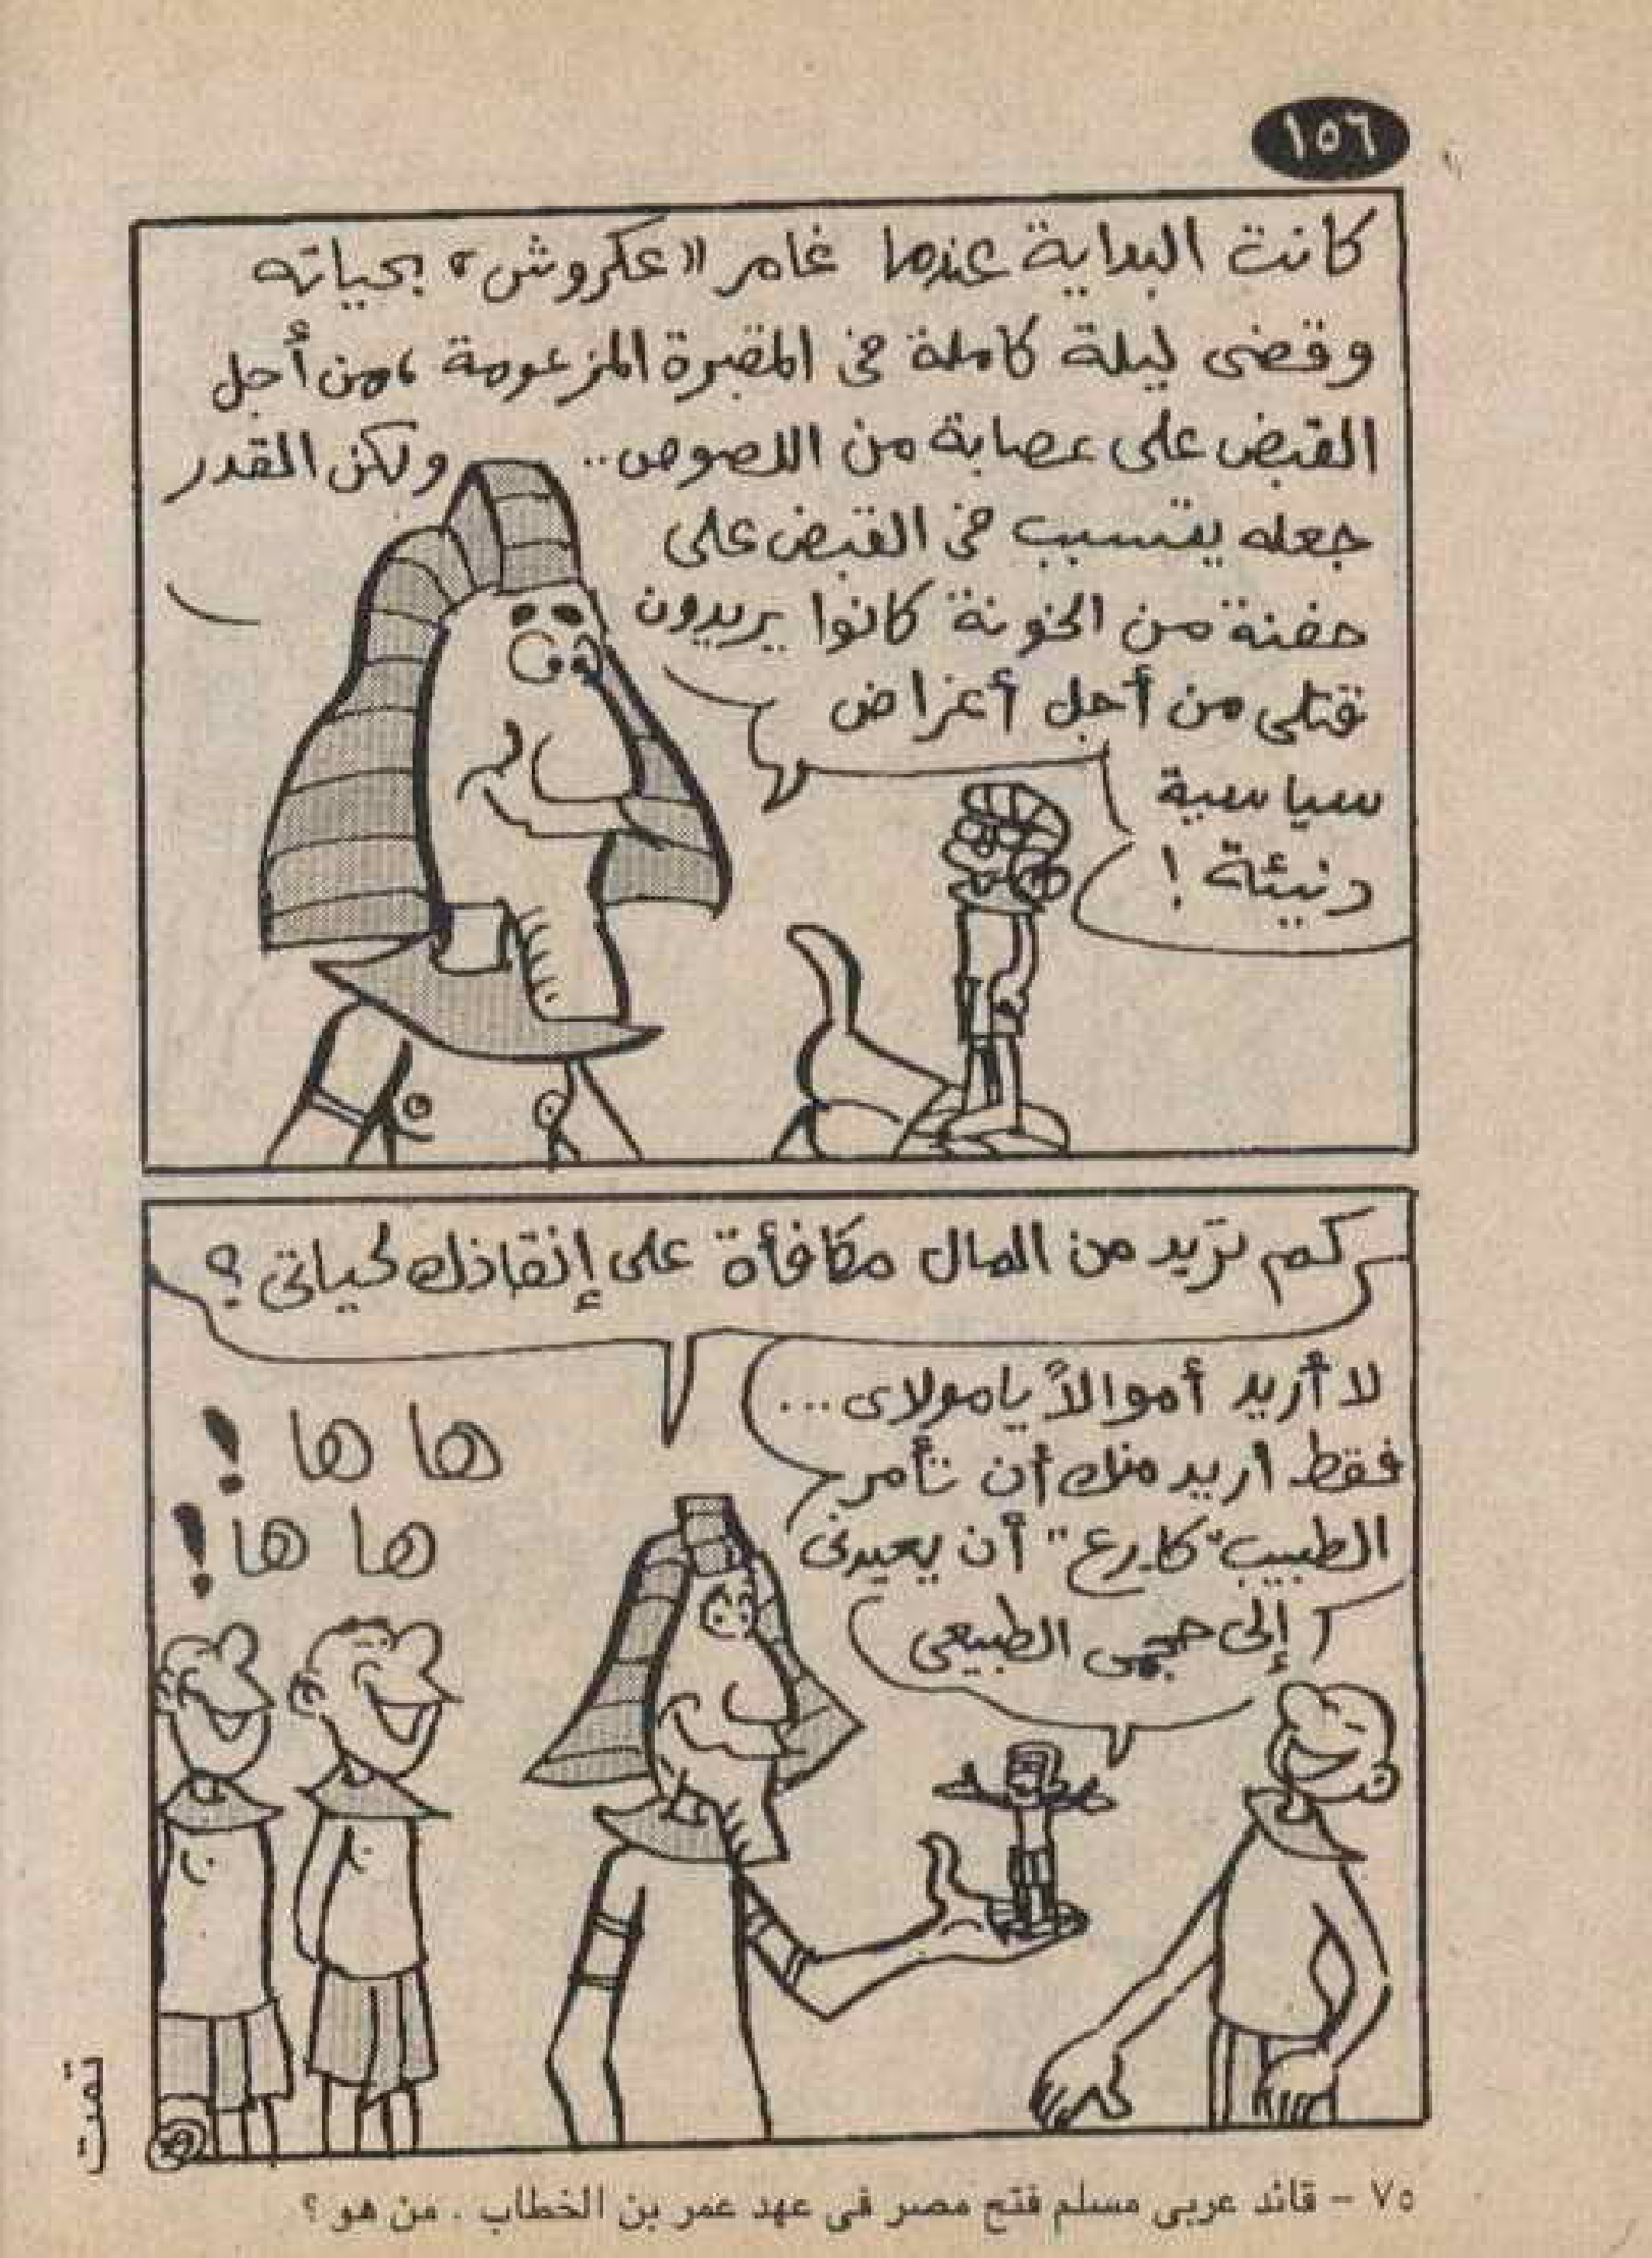 ١٥٦
كانت البداية عندما غامر «عكروش» بحياته
وقضى ليلة كاملة فى المقبرة المزعومة، من أجل
القبض على عصابة من اللصوص.. ولكن القدر
جعله يتسبب فى القبض على
حفنة من الخونة كانوا يريدون
قتلى من أجل أغراض
سياسية
دنيئة !
كم تريد من المال مكافأة على إنقاذك لحياتى ؟
لا أريد أموالاً يا مولاى...
فقط أريد منك أن تأمر
الطبيب "كارع" أن يعيدنى
إلى حجمى الطبيعى
ها ها !
ها ها !
تمت
٧٥ – قائد عربى مسلم فتح مصر فى عهد عمر بن الخطاب . من هو ؟